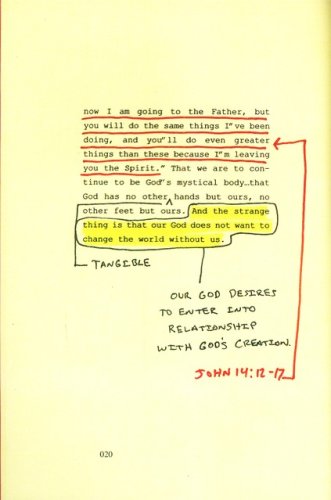 now I am going to the Father, but
you will do the same things I"ve been
doing, and you"ll do even greater
things than these because I"m leaving
you the Spirit." That we are to con-
tinue to be God's mystical body…that
God has no other hands but ours, no
other feet but ours. And the strange
thing is that our God does not want to
change the world without us.
TANGIBLE
OUR GOD DESIRES
TO ENTER INTO
RELATIONSHIP
WITH GOD'S CREATION.
JOHN 14:12-17
020